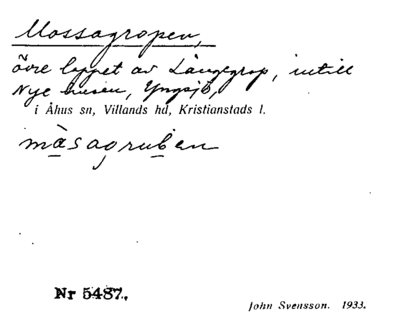 Mossagropen,
övre loppet av Långegrop, intill
Nye husen, Yngsjö,
i Åhus sn, Villands hd, Kristianstads l.
måsagruben
Nr 5487.
John Svensson. 1933.